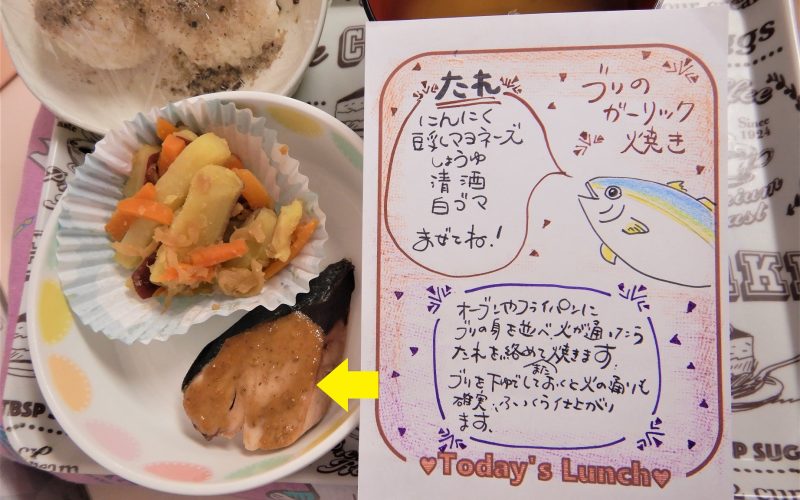 ブリの
ガーリック
焼き
たれ
にんにく
豆乳マヨネーズ
しょうゆ
清酒
白ゴマ
まぜてね!
オーブンやフライパンに
ブリの身を並べ、火が通ったら
たれを絡めて焼きます。
また
ブリを下ゆでしておくと火の通りも
確実、ふっくら仕上がり
ます。
♥Today's Lunch♥
Since
1924
TBSP SUG